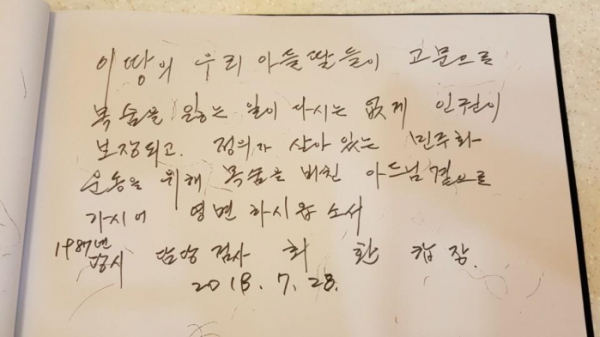 이 땅의 우리 아들딸들이 고문으로
목숨을 잃는 일이 다시는 없게 인권이
보장되고. 정의가 살아 있는 민주화
운동을 위해 목숨을 바친 아드님곁으로
가시어 영면 하시옵소서
1987년
당시 담당검사 최 환 합장.
2018. 7. 28.